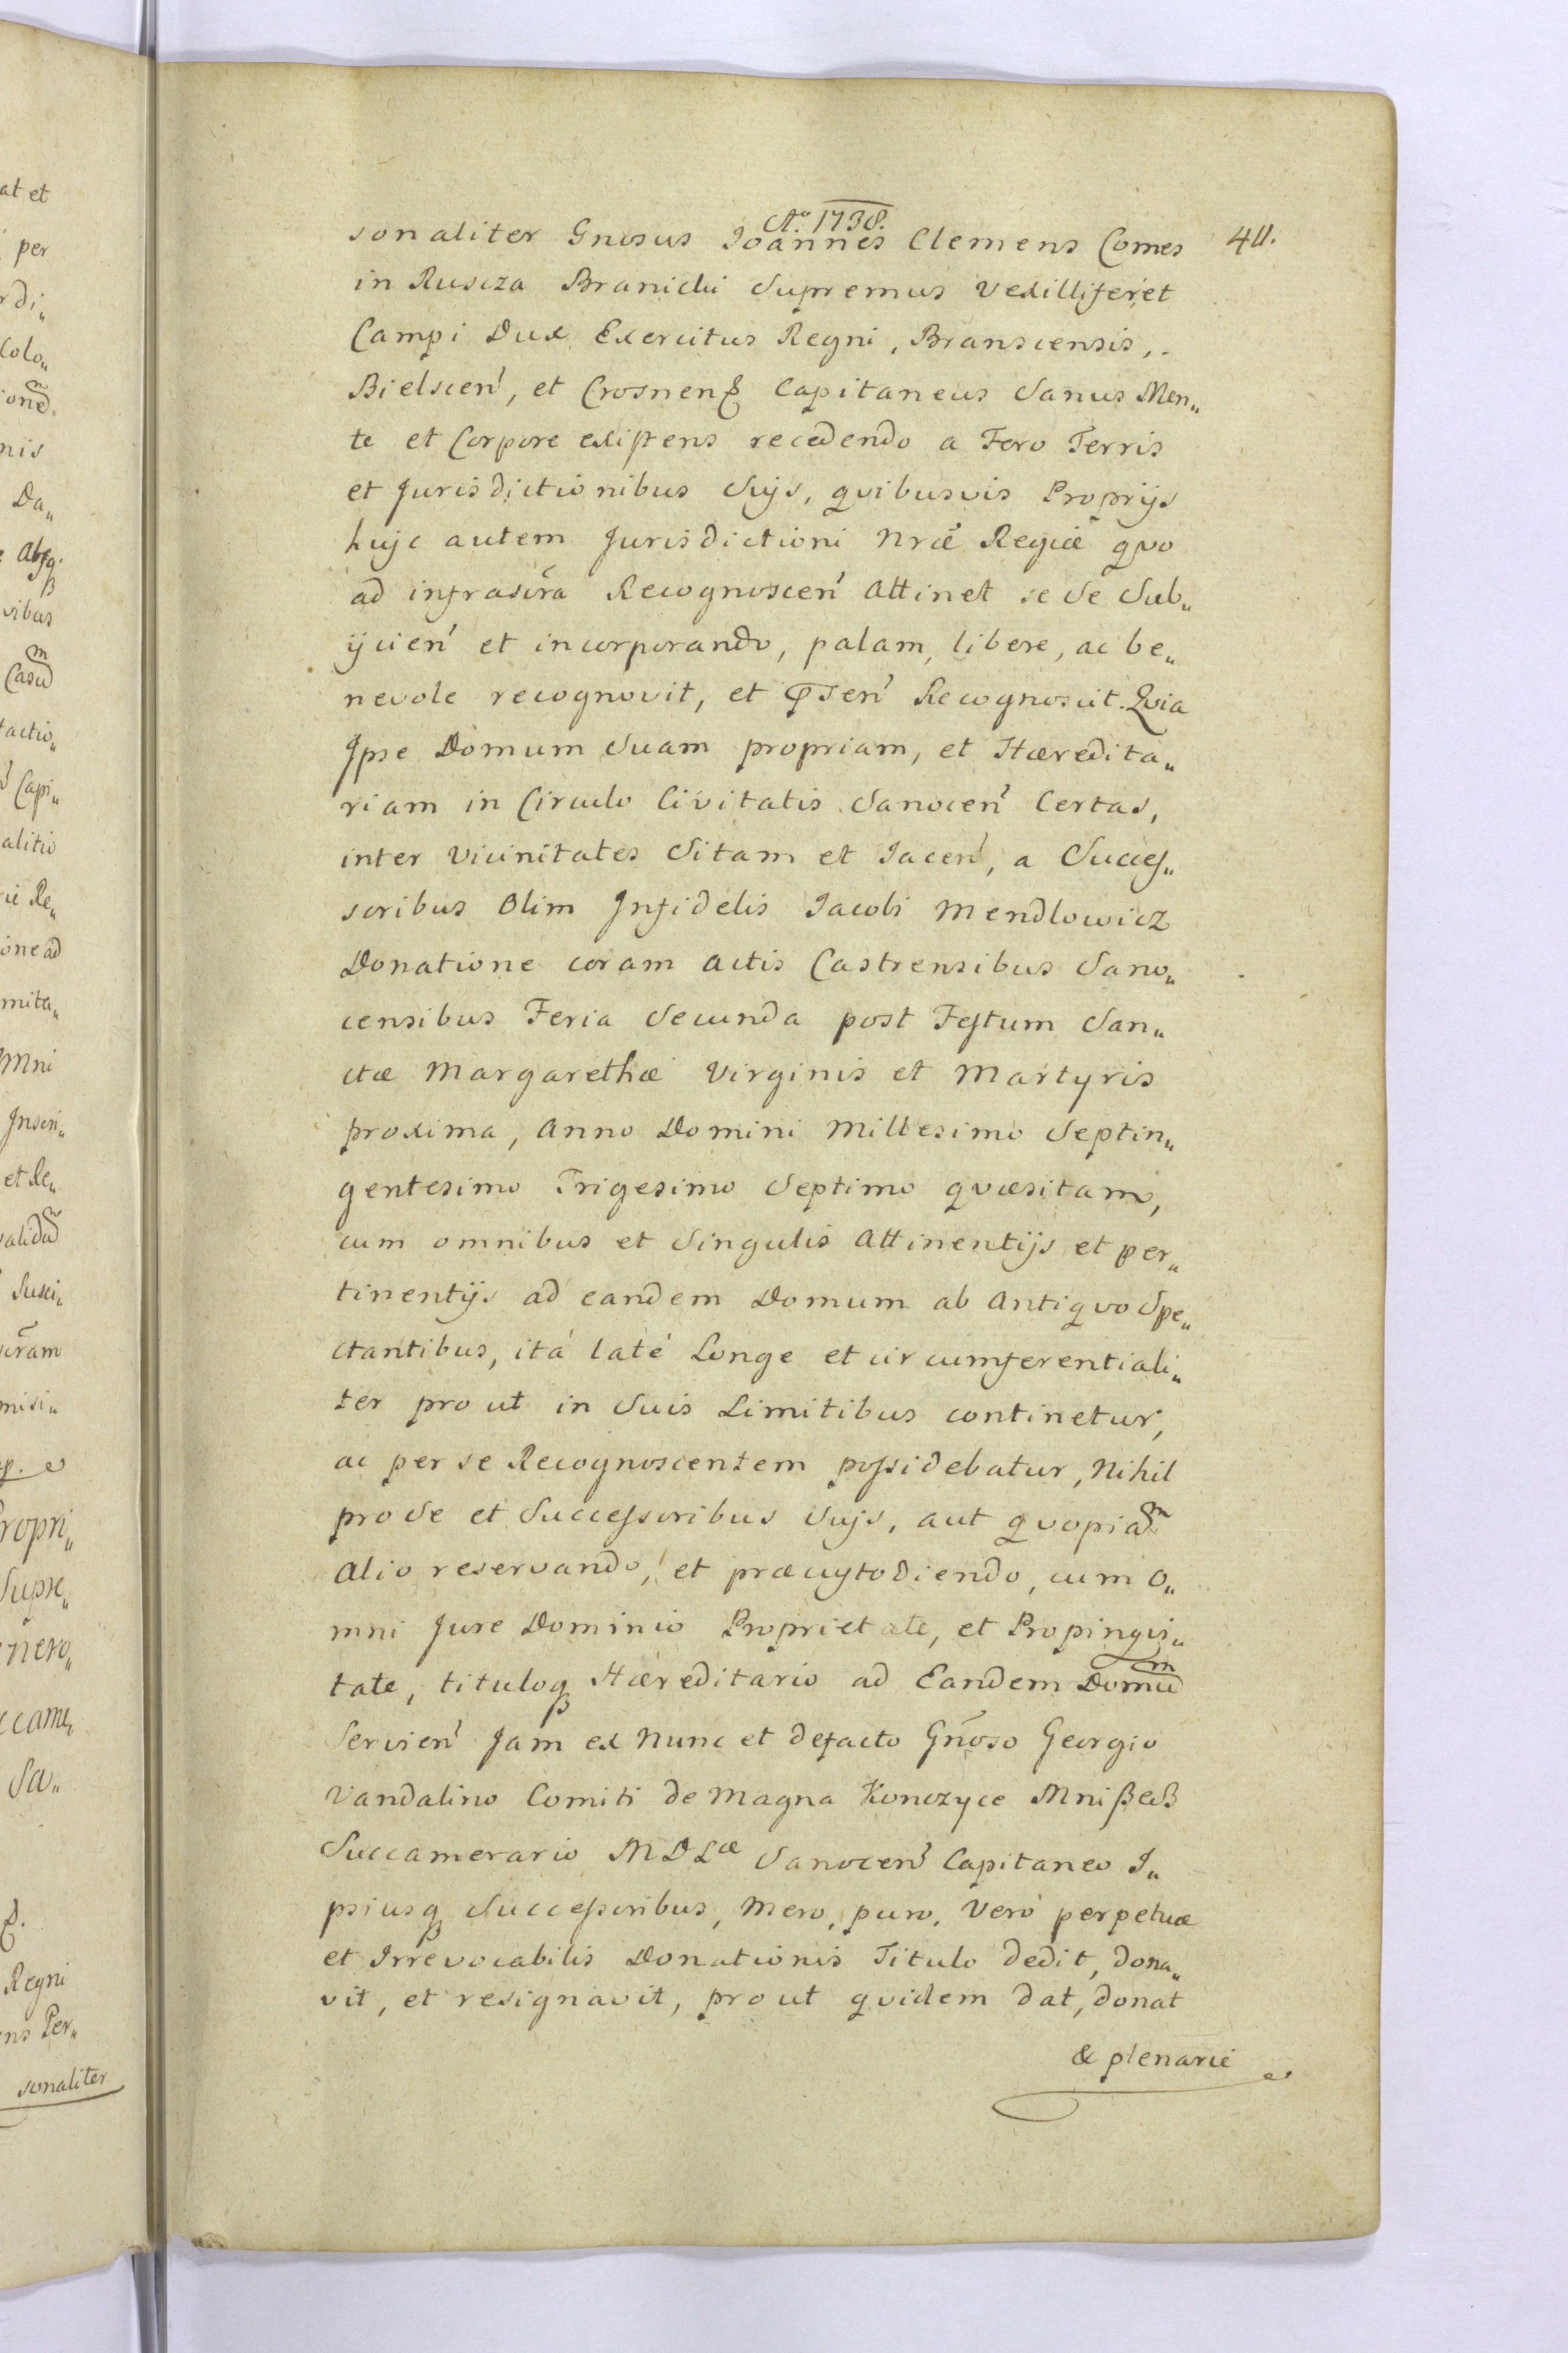 Aº 1738.
411.
sonaliter Gnosus Joannes Clemens Comes
in Ruscza Branicki Supremus Vexillifer et
Campi Dux Exercitus Regni, Branscensis,
Bielscen', et Crosnens Capitaneus Sanus Men„
te et Corpore existens recedendo a Foro Terris
et Jurisdictionibus Suys, quibusvis Proprijs
huyc autem Jurisdictioni Nræ Regiæ quo
ad infrascra Recognoscen' Attinet se Se Sub„
ijcien' et incorporando, palam, libere, ac be„
nevole recognovit, et Psen' Recognoscit. Quia
Ipse Domum Suam propriam, et Hæredita„
riam in Circulo Civitatis Sanocen' Certas,
inter Vicinitates Sitam et Jacen', a Succes„
soribus Olim Infidelis Jacobi Mendlowicz
Donatione coram Actis Castrensibus Sano„
censibus Feria Secunda post Festum San„
ctæ Margarethæ Virginis et Martyris
proxima, Anno Domini Millesimo Septin„
gentesimo Trigesimo Septimo quæsitam,
cum omnibus et Singulis Attinentijs et per„
tinentijs ad eandem Domum ab Antiquo Spe„
ctantibus, itá laté Longe et circumferentiali„
ter prout in Suis Limitibus continetur,
ac per se Recognoscentem possidebatur, Nihil
pro Se et Successoribus Suys, aut quopiam
Alio reservando, et præcustodiendo, cum o„
mni Jure Dominio Proprietate, et Propinqui„
tate, tituloq Hæreditario ad Eandem Domum
Servien' Jam ex Nunc et defacto Gnoso Georgio
Vandalino Comiti de Magna Konczyce Mniszech
Succamerario MDLæ Sanocen' Capitaneo I„
psiusq Successoribus, Mero, puro, Vero perpetuæ
et Irrevocabilis Donationis Titulo dedit, dona„
vit, et resignavit, prout quidem dat, donat
& plenarie